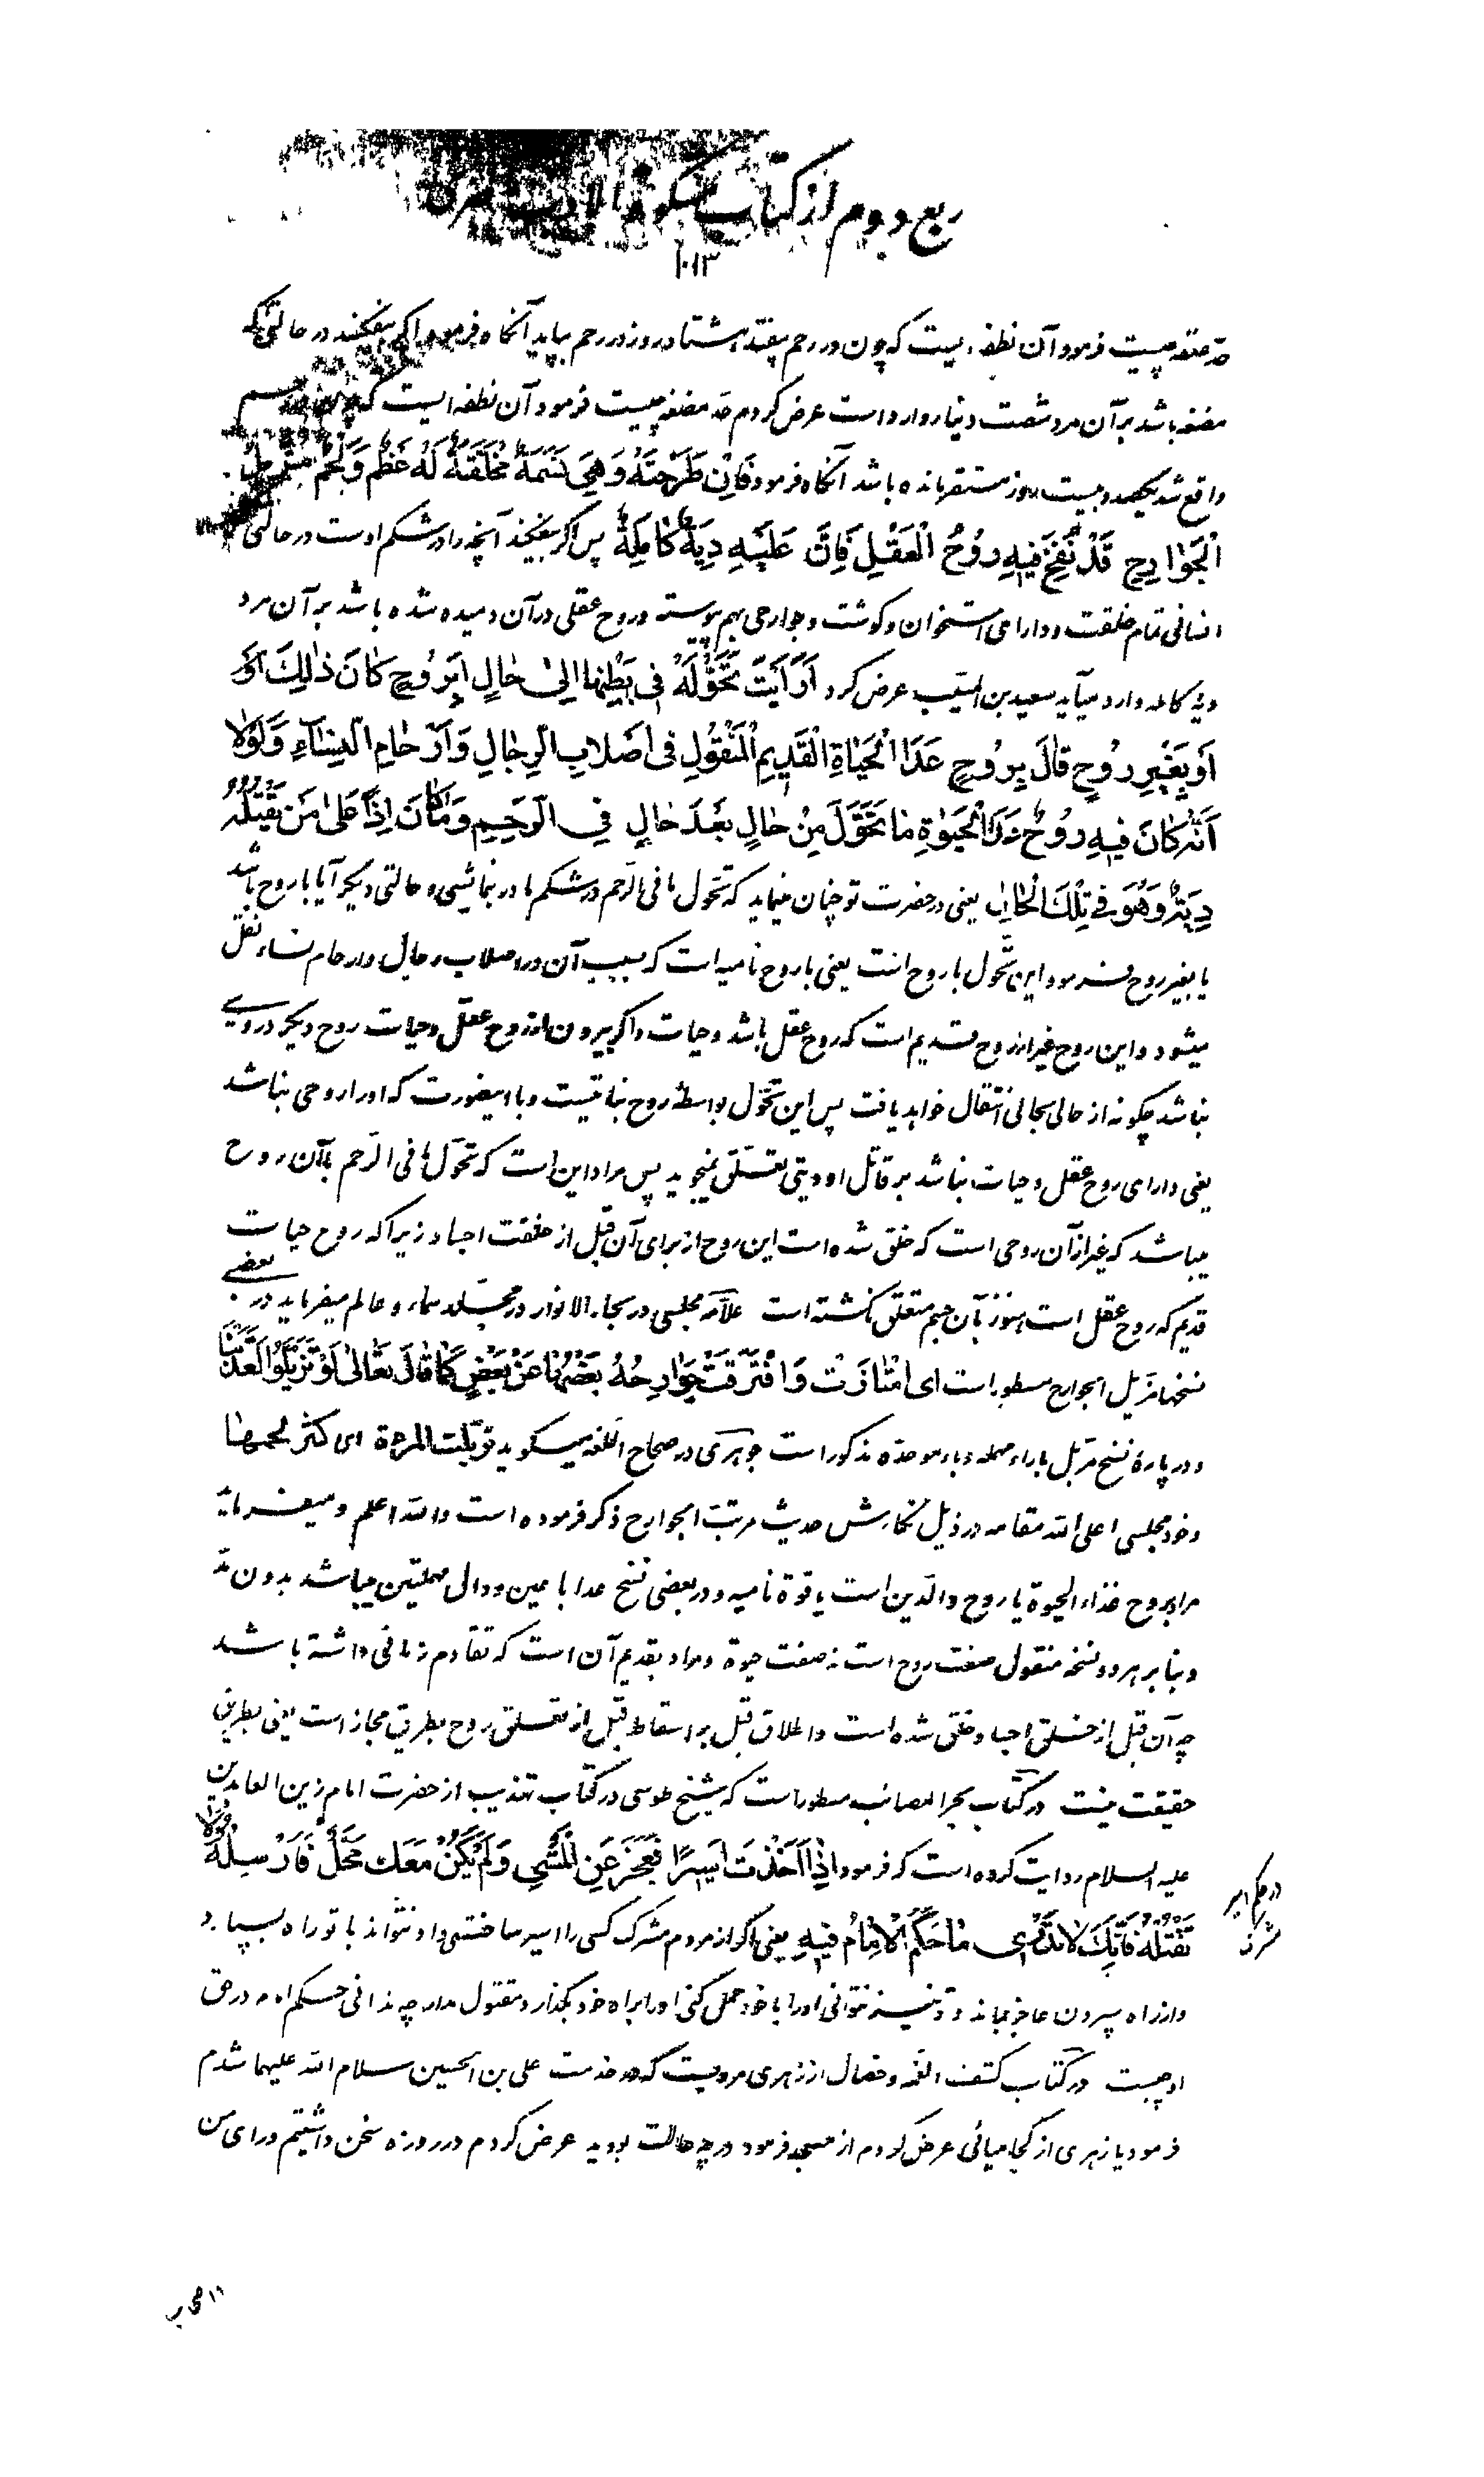 ربع دوم از کتاب مشکوة الادب
۱۰۱۳
حد علقه چیست فرمود آن نطفه ایست که چون در رحم بیفتد هشتاد روز در رحم بپاید آنگاه فرمود اگر بیفکند در حالتیکه
مضغه باشد بر آن مرد شصت دینار وارد است عرض کردم حد مضغه چیست فرمود آن نطفه ایست که چون در رحم
واقع شد یکصد و بیست روز مستقر مانده باشد آنگاه فرمود فَاِنْ طَرَحَتْهُ وَهِیَ نَسَمَةٌ مُخَلَّقَةٌ لَهُ عَظْمٌ وَلَحْمٌ مُزَیَّلُ
الْجَوٰارِحِ قَدْ نُفِخَ فیهِ رُوحُ الْعَقْلِ فَاِنَّ عَلَیْهِ دِیَةً کٰامِلَةً پس اگر بیفکند آنچه را در شکم اوست در حالتی
انسانی تمام خلقت و دارای استخوان و گوشت و جوارحی بهم پیوسته و روح عقلی در آن دمیده شده باشد بر آن مرد
دیهٔ کامله وارد میآید سعید بن المسیب عرض کرد اَرَاَیْتَ تَحَوُّلَهُ فی بَطْنِهٰا اِلیٰ حٰالٍ اَبِرُوحٍ کٰانَ ذٰلِکَ اَوْ
اَوْ بِغَیْرِ رُوحٍ قٰالَ بِرُوحٍ عَدَا الْحَیٰاةِ الْقَدیمِ الْمَنْقُولِ فی اَصْلابِ الرِّجٰالِ وَاَرْحٰامِ النِّسٰاءِ وَلَوْلا
اَنَّهُ کٰانَ فیهِ رُوحٌ عَدَا الْحَیٰوةِ مٰا تَحَوَّلَ مِنْ حٰالٍ بَعْدَ حٰالٍ فِی الرَّحِمِ وَمٰا کٰانَ اِذاً عَلیٰ مَنْ یَقْتُلُهُ
دِیَةٌ وَهُوَ فی تِلْکَ الْحٰالِ یعنی در حضرت تو چنان مینماید که تحول ما فی الرحم در شکم مادر بنمایشی و حالتی دیگر آیا با روح باشد
یا بغیر روح فرمود این تحول با روح است یعنی با روح نامیه است که بسبب آن در اصلاب رجال و ارحام نساء نقل
میشود و این روح غیر از روح قدیم است که روح عقل باشد و حیات و اگر بیرون از روح عقل و حیات روح دیگر در وی
نباشد چگونه از حالی بحالی انتقال خواهد یافت پس این تحول بواسطهٔ روح نباتیست و با اینصورت که او را روحی نباشد
یعنی دارای روح عقل و حیات نباشد بر قاتل او دیتی تعلق نمیجوید پس مراد این است که تحول ما فی الرحم بآن روح
میباشد که غیر از آن روحی است که خلق شده است این روح از برای آن قبل از خلقت اجساد زیرا که روح حیات
قدیم که روح عقل است هنوز بآن جسم متعلق نگشته است علامه مجلسی در بحار الانوار در مجلد سماء و عالم میفرماید در بعضی
نسخها مزیل الجوارح مسطور است ای امْتٰازَتْ وَافْتَرَقَتْ جَوٰارِحُهُ بَعْضُهٰا عَنْ بَعْضٍ کَمٰا قٰالَ تَعٰالیٰ لَوْ تَزَیَّلُوا لَعَذَّبْنَا
و در پارهٔ نسخ مربل باراء مهمله و باء موحده مذکور است جوهری در صحاح اللغه میگوید تربلت المرءة ای کثر لحمها
و خود مجلسی اعلی الله مقامه در ذیل نگارش حدیث مرتب الجوارح ذکر فرموده است والله اعلم و میفرماید
مراد بروح غذاء الحیوة یا روح والدین است یا قوة نامیه و در بعضی نسخ عدا با عین و دال مهملتین میباشد بدون مد
و بنا بر هر دو نسخه منقول صفت روح است نه صفت حیوة و مراد بقدیم آن است که تقادم زمانی داشته باشد
چه آن قبل از خلق اجساد خلق شده است و اطلاق قتل بر اسقاط قبل از تعلق روح بطریق مجاز است یعنی بطریق
حقیقت نیست در کتاب بحر المصائب مسطور است که شیخ طوسی در کتاب تهذیب از حضرت امام زین العابدین
علیه السلام روایت کرده است که فرمود اِذٰا اَخَذْتَ اَسیراً فَعَجَزَ عَنِ الْمَشْیِ وَلَمْ یَکُنْ مَعَکَ مَحْمَلٌ فَاَرْسِلْهُ وَلٰا
تَقْتُلْهُ فَاِنَّکَ لٰا تَدْری مٰا حُکْمُ الْاِمٰامِ فیهِ یعنی اگر از مردم مشرک کسی را اسیر ساختی و او نتواند با تو راه بسپارد
و از راه سپردن عاجز بماند و تو نیز نتوانی او را با خود حمل کنی او را براه خود بگذار و مقتول مدار چه ندانی حکم امام در حق
او چیست در کتاب کشف الغمه و خصال از زهری مرویست که در خدمت علی بن الحسین سلام الله علیهما شدم
فرمود یا زهری از کجا میائی عرض کردم از مسجد فرمود در چه حالت بودید عرض کردم در روزه سخن داشتیم و رای من
در حکم اسیر
مشرک